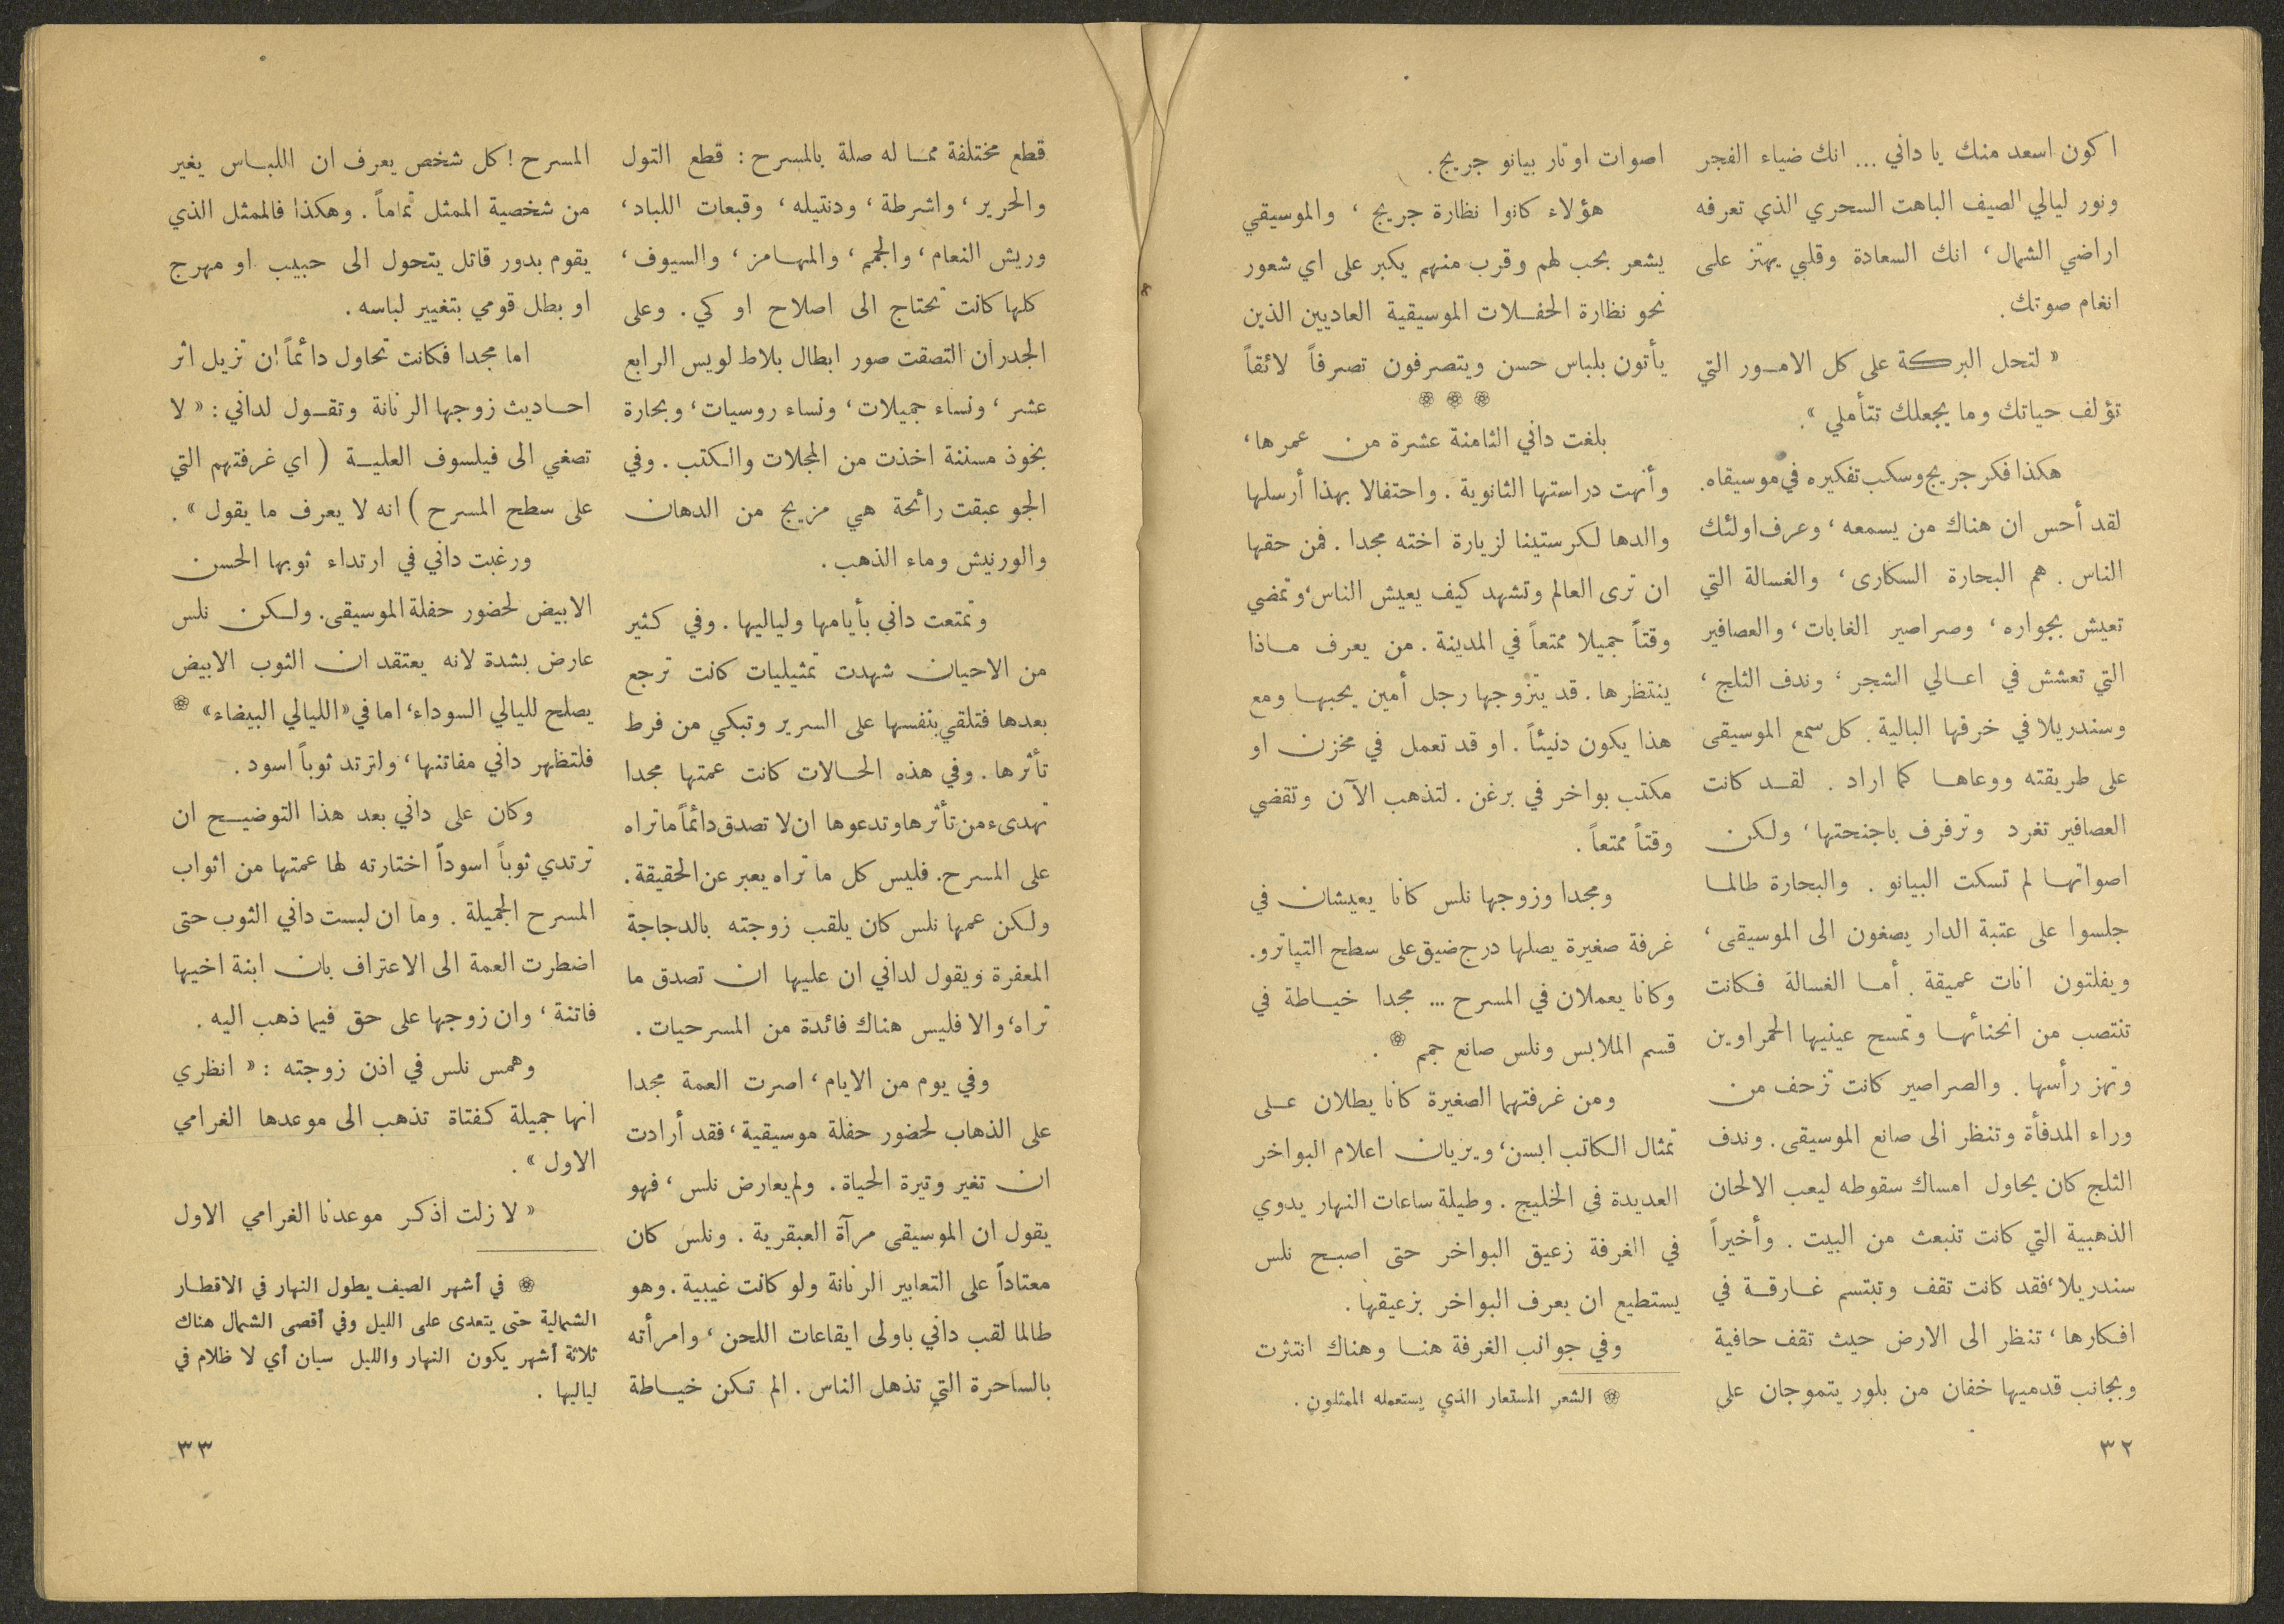 اكون اسعد منك يا داني ... انك ضياء الفجر
ونور ليالي الصيف الباهت السحري الذي تعرفه
اراضي الشمال ، انك السعادة وقلبي يهتز على
انغام صوتك .
« لتحل البركة على كل الامور التي
تؤلف حياتك وما يجعلك تتأملي » .
هكذا فكر جريج وسكب تفكيره في موسيقاه .
لقد أحس ان هناك من يسمعه ، وعرف اولئك
الناس . هم البحارة السكارى ، والغسالة التي
تعيش بجواره ، وصراصير الغابات ، والعصافير
التي تعشش في اعالي الشجر ، وندف الثلج ،
وسندريلا في خرقها البالية . كل سمع الموسيقى
على طريقته ووعاها كما اراد . لقد كانت
العصافير تغرد وترفرف باجنحتها ، ولكن
اصواتها لم تسكت البيانو . والبحارة طالما
جلسوا على عتبة الدار يصغون الى الموسيقى ،
ويفلتون انات عميقة . أما الغسالة فكانت
تنتصب من انحنائها وتمسح عينيها الحمراوين
وتهز رأسها . والصراصير كانت تزحف من
وراء المدفأة وتنظر الى صانع الموسيقى . وندف
الثلج كان يحاول امساك سقوطه ليعب الالحان
الذهبية التي كانت تنبعث من البيت . وأخيراً
سندريلا ، فقد كانت تقف وتبتسم غارقة في
افكارها ، تنظر الى الارض حيث تقف حافية
وبجانب قدميها خفان من بلور يتموجان على
اصوات اوتار بيانو جريج .
هؤلاء كانوا نظارة جريج ، والموسيقي
يشعر بحب لهم وقرب منهم يكبر على اي شعور
نحو نظارة الحفلات الموسيقية العاديين الذين
يأتون بلباس حسن ويتصرفون تصرفاً لائقاً
❀ ❀ ❀
بلغت داني الثامنة عشرة من عمرها ،
وأنهت دراستها الثانوية . واحتفالا بهذا أرسلها
والدها لكرستينا لزيارة اخته مجدا . فمن حقها
ان ترى العالم وتشهد كيف يعيش الناس ، وتمضي
وقتاً جميلا ممتعاً في المدينة . من يعرف ماذا
ينتظرها . قد يتزوجها رجل أمين يحبها ومع
هذا يكون دنيئاً . او قد تعمل في مخزن او
مكتب بواخر في برغن . لتذهب الآن وتقضي
وقتاً ممتعاً .
ومجدا وزوجها نلس كانا يعيشان في
غرفة صغيرة يصلها درج ضيق على سطح التياترو .
وكانا يعملان في المسرح ... مجدا خياطة في
قسم الملابس ونلس صانع جمم ❀ .
ومن غرفتهما الصغيرة كانا يطلان على
تمثال الكاتب ابسن ، ويريان اعلام البواخر
العديدة في الخليج . وطيلة ساعات النهار يدوي
في الغرفة زعيق البواخر حتى اصبح نلس
يستطيع ان يعرف البواخر بزعيقها .
وفي جوانب الغرفة هنا وهناك انتثرت
❀ الشعر المستعار الذي يستعمله الممثلون .
٣٢
قطع مختلفة مما له صلة بالمسرح : قطع التول
والحرير ، واشرطة ، ودنتيله ، وقبعات اللباد ،
وريش النعام ، والجمم ، والمهامز ، والسيوف ،
كلها كانت تحتاج الى اصلاح او كي . وعلى
الجدران التصقت صور ابطال بلاط لويس الرابع
عشر ، ونساء جميلات ، ونساء روسيات ، وبحارة
بخوذ مسننة اخذت من المجلات والكتب . وفي
الجو عبقت رائحة هي مزيج من الدهان
والورنيش وماء الذهب .
وتمتعت داني بأيامها ولياليها . وفي كثير
من الاحيان شهدت تمثيليات كانت ترجع
بعدها فتلقي بنفسها على السرير وتبكي من فرط
تأثرها . وفي هذه الحالات كانت عمتها مجدا
تهدىء من تأثرها وتدعوها ان لا تصدق دائماً ما تراه
على المسرح . فليس كل ما تراه يعبر عن الحقيقة .
ولكن عمها نلس كان يلقب زوجته بالدجاجة
المعفرة ويقول لداني ان عليها ان تصدق ما
تراه ، والا فليس هناك فائدة من المسرحيات .
وفي يوم من الايام ، اصرت العمة مجدا
على الذهاب لحضور حفلة موسيقية ، فقد أرادت
ان تغير وتيرة الحياة . ولم يعارض نلس ، فهو
يقول ان الموسيقى مرآة العبقرية . ونلس كان
معتاداً على التعابير الرنانة ولو كانت غيبية . وهو
طالما لقب داني باولى ايقاعات اللحن ، وامرأته
بالساحرة التي تذهل الناس . الم تكن خياطة
المسرح ! كل شخص يعرف ان اللباس يغير
من شخصية الممثل تماماً . وهكذا فالممثل الذي
يقوم بدور قاتل يتحول الى حبيب او مهرج
او بطل قومي بتغيير لباسه .
اما مجدا فكانت تحاول دائماً ان تزيل اثر
احاديث زوجها الرنانة وتقول لداني : « لا
تصغي الى فيلسوف العلية ( اي غرفتهم التي
على سطح المسرح ) انه لا يعرف ما يقول » .
ورغبت داني في ارتداء ثوبها الحسن
الابيض لحضور حفلة الموسيقى . ولكن نلس
عارض بشدة لانه يعتقد ان الثوب الابيض
يصلح لليالي السوداء ، اما في « الليالي البيضاء » ❀
فلتظهر داني مفاتنها ، ولترتد ثوباً اسود .
وكان على داني بعد هذا التوضيح ان
ترتدي ثوباً اسوداً اختارته لها عمتها من اثواب
المسرح الجميلة . وما ان لبست داني الثوب حتى
اضطرت العمة الى الاعتراف بان ابنة اخيها
فاتنة ، وان زوجها على حق فيما ذهب اليه .
وهمس نلس في اذن زوجته : « انظري
انها جميلة كفتاة تذهب الى موعدها الغرامي
الاول » .
« لا زلت اذكر موعدنا الغرامي الاول
❀ في أشهر الصيف يطول النهار في الاقطار
الشمالية حتى يتعدى على الليل وفي أقصى الشمال هناك
ثلاثة أشهر يكون النهار والليل سيان أي لا ظلام في
لياليها .
٣٣